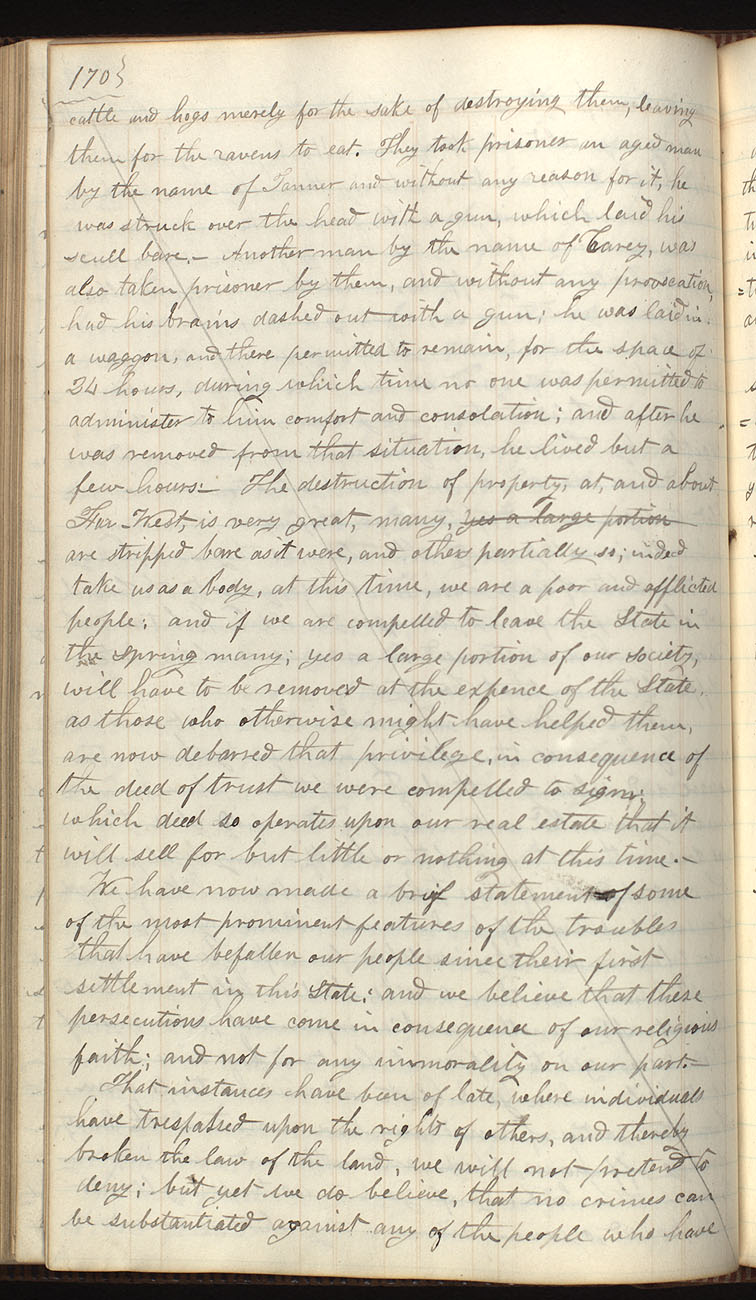 170}
cattle and hogs merely for the sake of destroying them, leaving
them for the ravens to eat. They took prisoner an aged man
by the name of Tanner and without any reason for it, he
was struck over the head with a gun, which laid his
scull bare.— Another man by the name of Carey, was
also taken prisoner by them, and without any provocation,
had his brains dashed out with a gun; he was laid in
a waggon, and there permitted to remain, for the space of
24 hours, during which time no one was permitted to
administer to him comfort and consolation; and after he
was removed from that situation, he lived but a
few hours:— The destruction of property, at, and about
Far-West, is very great, many, yes a large portion
are stripped bare as it were, and others partially so; indeed
take us as a body, at this time, we are a poor and afflicted
people; and if we are compelled to leave the State in
the spring many; yes a large portion of our society,
will have to be removed at the expence of the State,
as those who otherwise might have helped them,
are now debarred that privilege, in consequence of
the deed of trust we were compelled to sign;
which deed so operates upon our real estate that it
will sell for but little or nothing at this time.—
We have now made a brief statement of some
of the most prominent features of the troubles
that have befallen our people since their first
settlement in this State; and we believe that these
persecutions have come in consequence of our religious
faith; and not for any immorality on our part.—
That instances have been of late, where individuals
have trespassed upon the rights of others, and thereby
broken the law of the land, we will not pretend to
deny; but yet we do believe, that no crimes can
be substantiated against any of the people who have